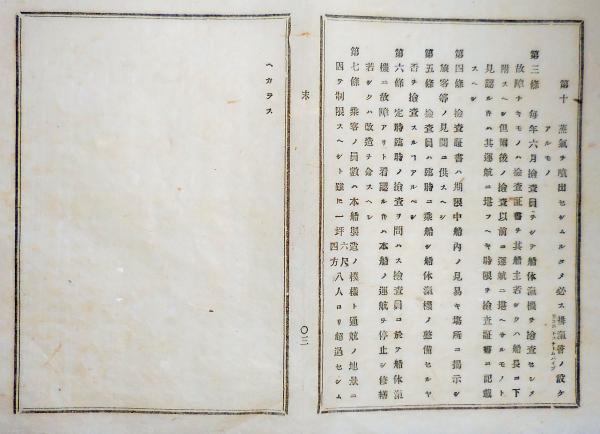 第十 蒸氣ヲ噴出セシムルタメ必ス排氣管ノ設ケ
アルモノ
第三條 毎年六月檢査員ヲシテ船体滊機ヲ檢査セシメ
故障ナキモノハ檢査証書ヲ其船主若シクハ船長ニ下
附スヘシ但爾後ノ檢査以前ニ運航ニ堪ヘサルモノト
見認ルトキハ其運航ニ堪フヘキ時限ヲ檢査証書ニ記載
スヘシ
第四條 檢査証書ハ期限中船內ノ見易キ塲所ニ揭示シ
旅客等ノ見聞ニ供スヘシ
第五條 檢査員ハ臨時ニ乘船シ船体滊機ノ整備セルヤ
否ヲ檢査スルヿアルベシ
第六條 定時臨時ノ檢査ヲ問ハス檢査員ニ於テ船体滊
機ニ故障アリト看認ルトキハ本船ノ運航ヲ停止シ修繕
若シクハ改造ヲ命スヘシ
第七條 乘客ノ員數ハ本船製造ノ模樣ト通航ノ地景ニ
因テ制限スヘシト雖ヒ一坪六尺四方八人ヨリ超過セシム
〇三
末
ヘカラス